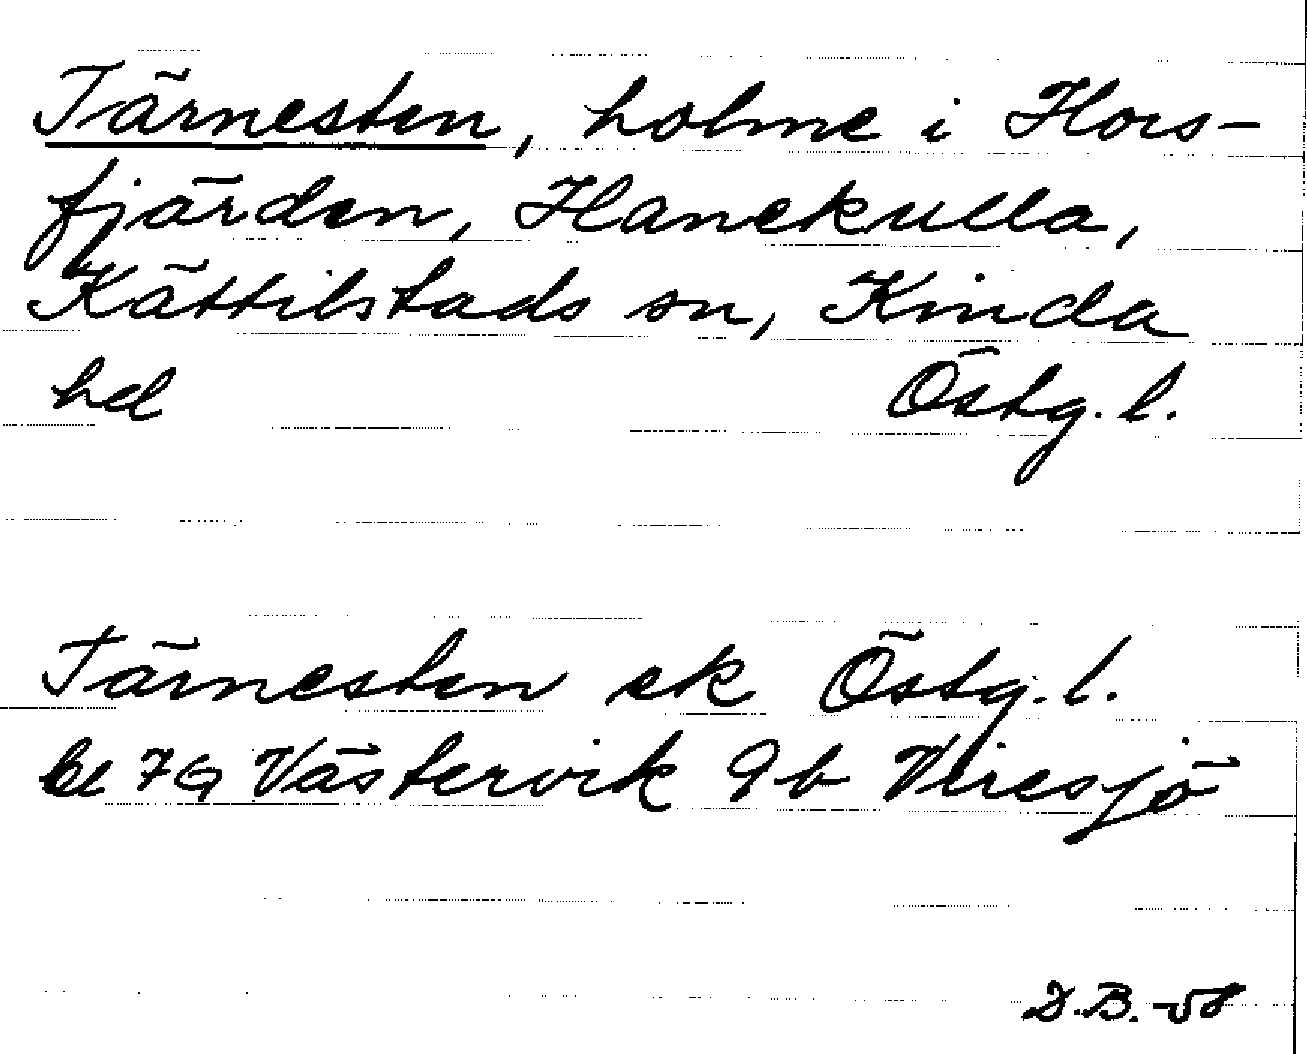 Tärnesten, holme i Hors-
fjärden, Hanekulla,
Kättilstads sn, Kinda
hd Östg. l.
Tärnesten ek Östg. l.
bl 7G Västervik 9b Viresjö
D.B. -58